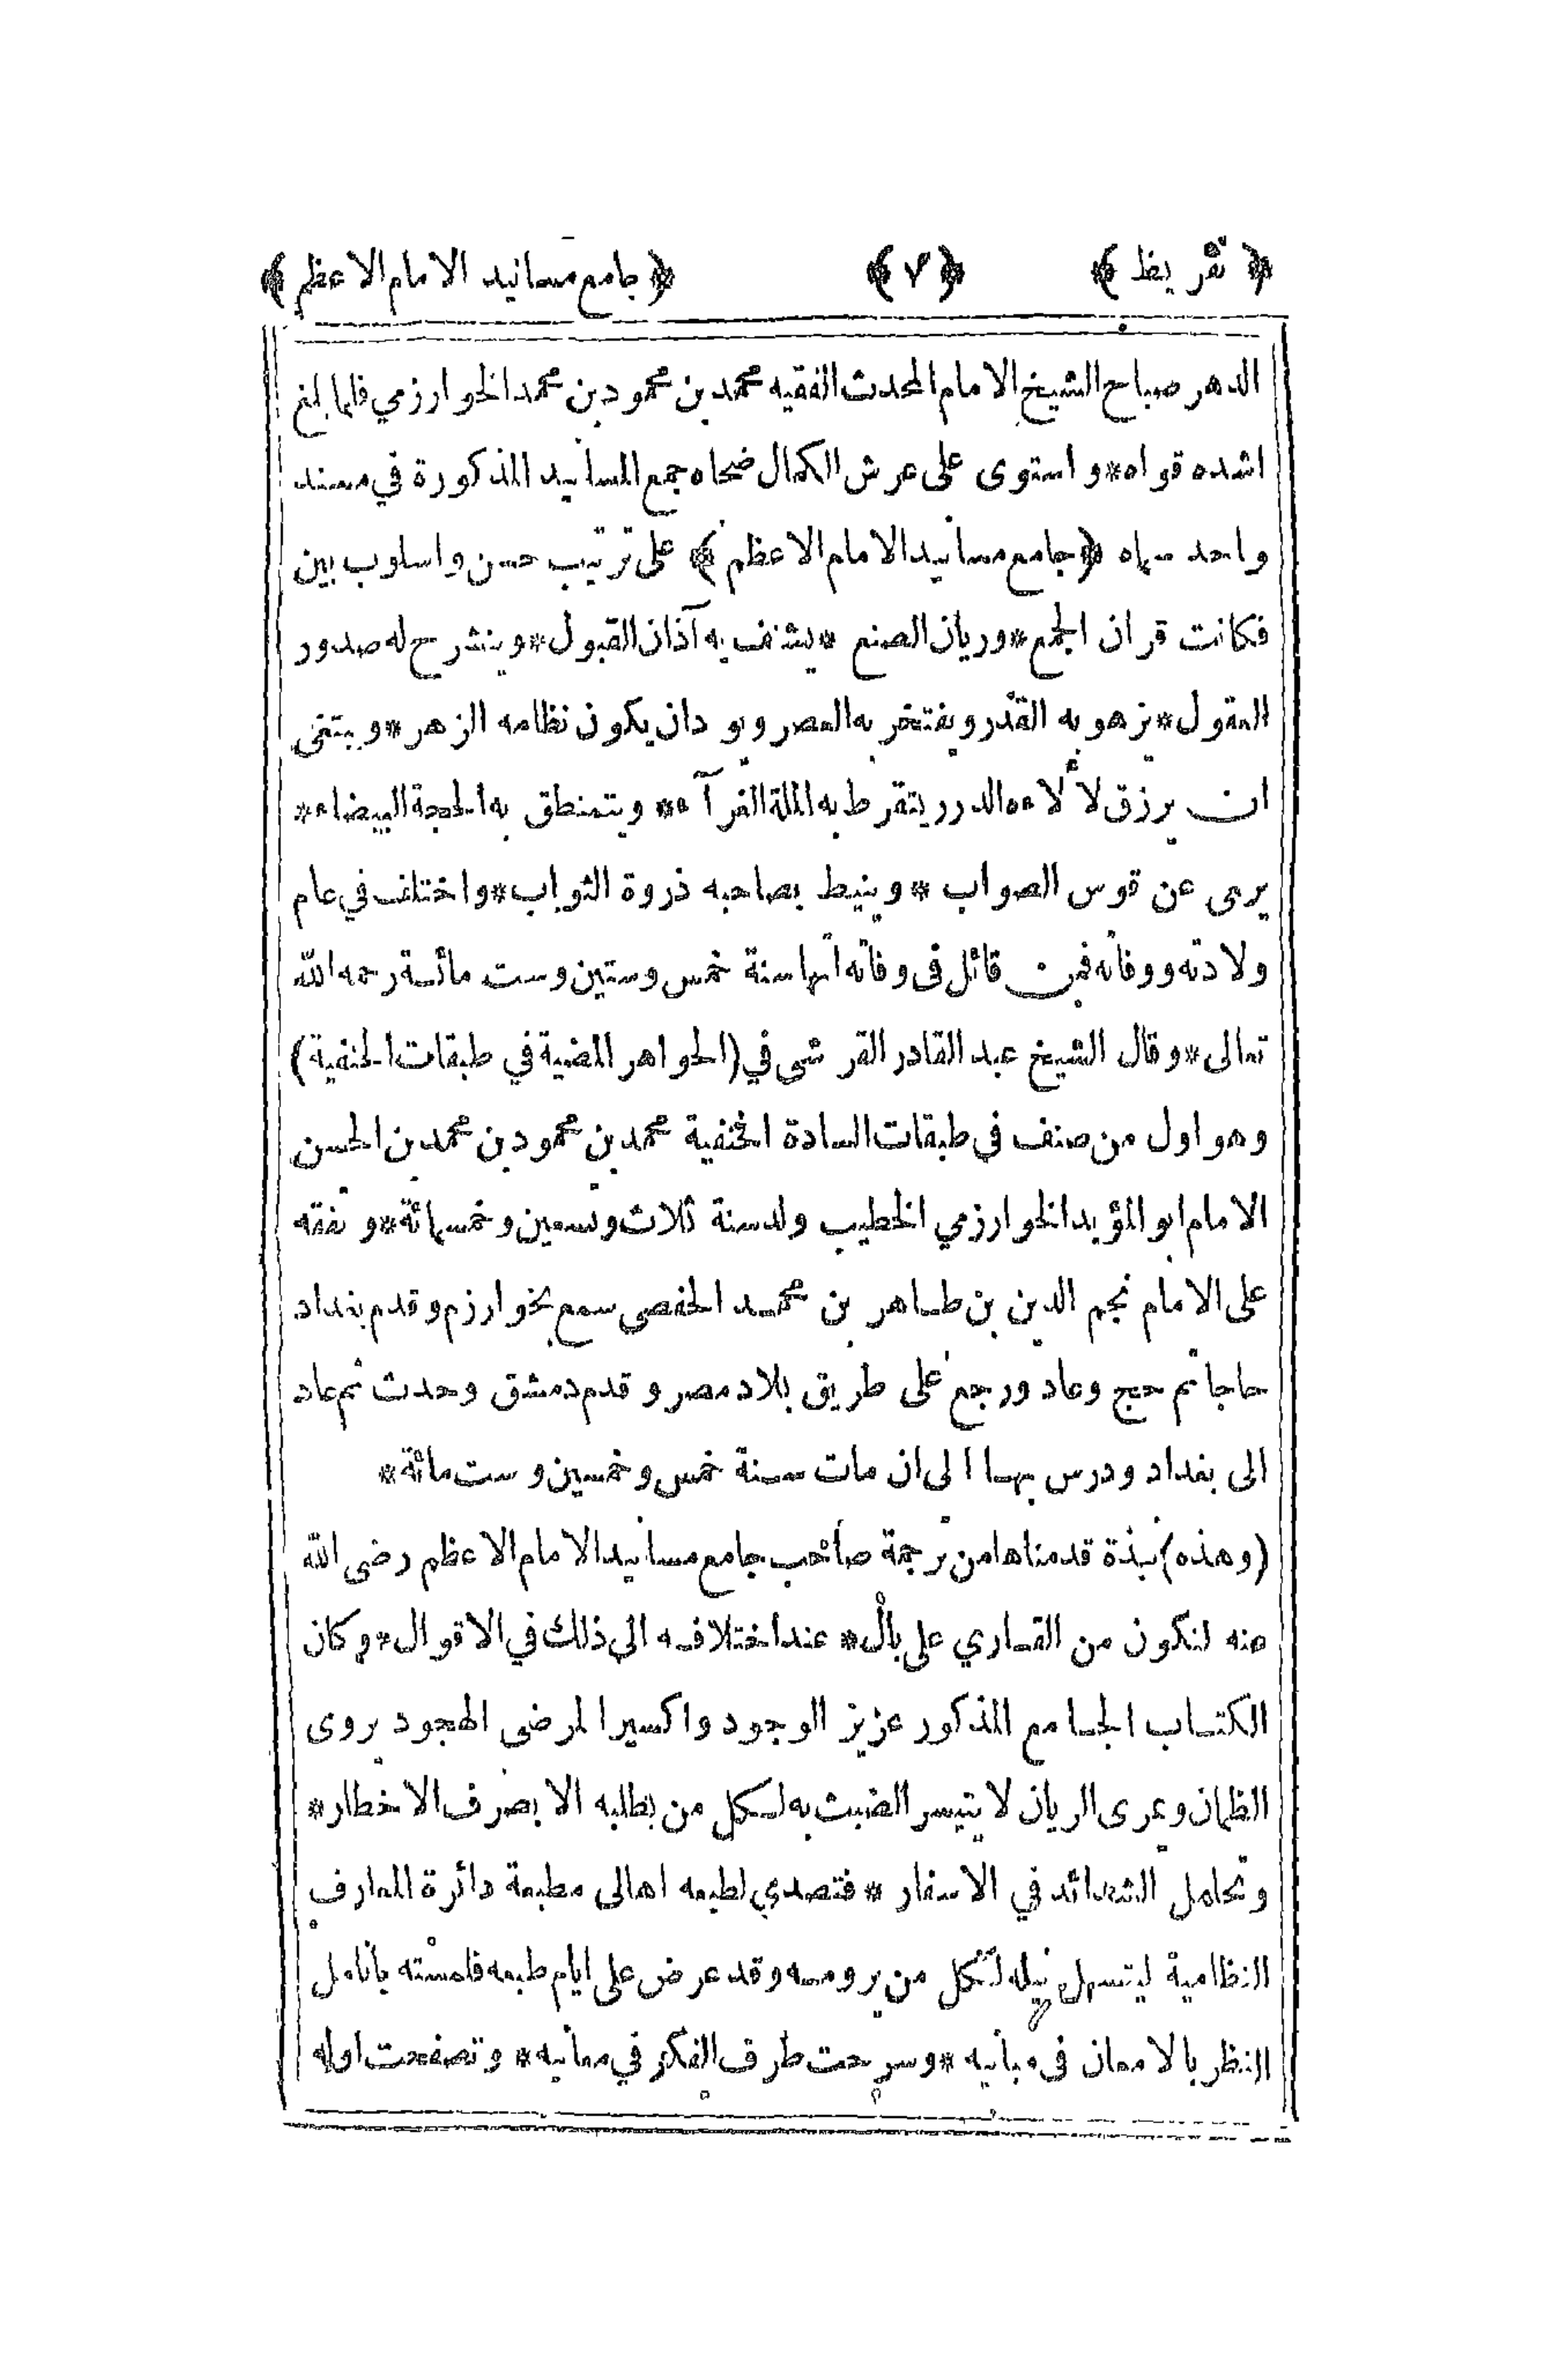 ﴿ تقريظ ﴾ ﴿ ٧ ﴾ ﴿ جامع مسانيد الامام الاعظم ﴾
الدهر صباح الشيخ الامام المحدث الفقيه محمد بن محمود بن محمد الخوارزمي فلما بلغ
اشده قواه * و استوى على عرش الكمال ضحاه جمع المسانيد المذكورة في مسند
واحد سماه ﴿ جامع مسانيد الامام الاعظم ﴾ على ترتيب حسن و اسلوب بين
فكانت قران الجمع * وريان الصنع * يشنف به آذان القبول * وينشرح له صدور
العقول * يزهو به القدر ويفتخر به العصر ويو دان يكون نظامه الزهر * ويبتغى
ان يرزق لألاءه الدرر يتقرط به الملة الغرآء * ويتمنطق به الحجة البيضاء *
يرمى عن قوس الصواب * وينيط بصاحبه ذروة الثواب * واختلف في عام
ولادته ووفاته فمن قائل فى وفاته انها سنة خمس وستين وست مائة رحمه الله
تعالى * وقال الشيخ عبد القادر القرشى في (الجواهر المضية في طبقات الحنفية)
وهو اول من صنف فى طبقات السادة الحنفية محمد بن محمود بن محمد بن الحسن
الامام ابو المؤيد الخوارزمي الخطيب ولد سنة ثلاث وتسعين وخمسمائة * و تفقه
على الامام نجم الدين بن طاهر بن محمد الحفصى سمع بخوارزم وقدم بغداد
حاجا ثم حج وعاد ورجع على طريق بلاد مصر و قدم دمشق وحدث ثم عاد
الى بغداد ودرس بها الى ان مات سنة خمس وخمسين و ست مائة *
(وهذه) نبذة قدمناها من ترجمة صاحب جامع مسانيد الامام الاعظم رضى الله
عنه لتكون من القارى على بال * عند اختلافه الى ذلك في الاقوال * وكان
الكتاب الجامع المذكور عزيز الوجود واكسيرا لمرضى الهجود يروى
الظمان ويمرى الريان لا يتيسر الضبث به لكل من يطلبه الا بصرف الاخطار *
وتحامل الشدائد في الاسفار * فتصدي لطبعه اهالى مطبعة دائرة المعارف
النظامية ليتسهل نيله لكل من يرومه وقد عرض على ايام طبعه فلمسته بأنامل
النظر بالامعان فى مبانيه * وسرحت طرف الفكر في معانيه * وتصفحت اوله